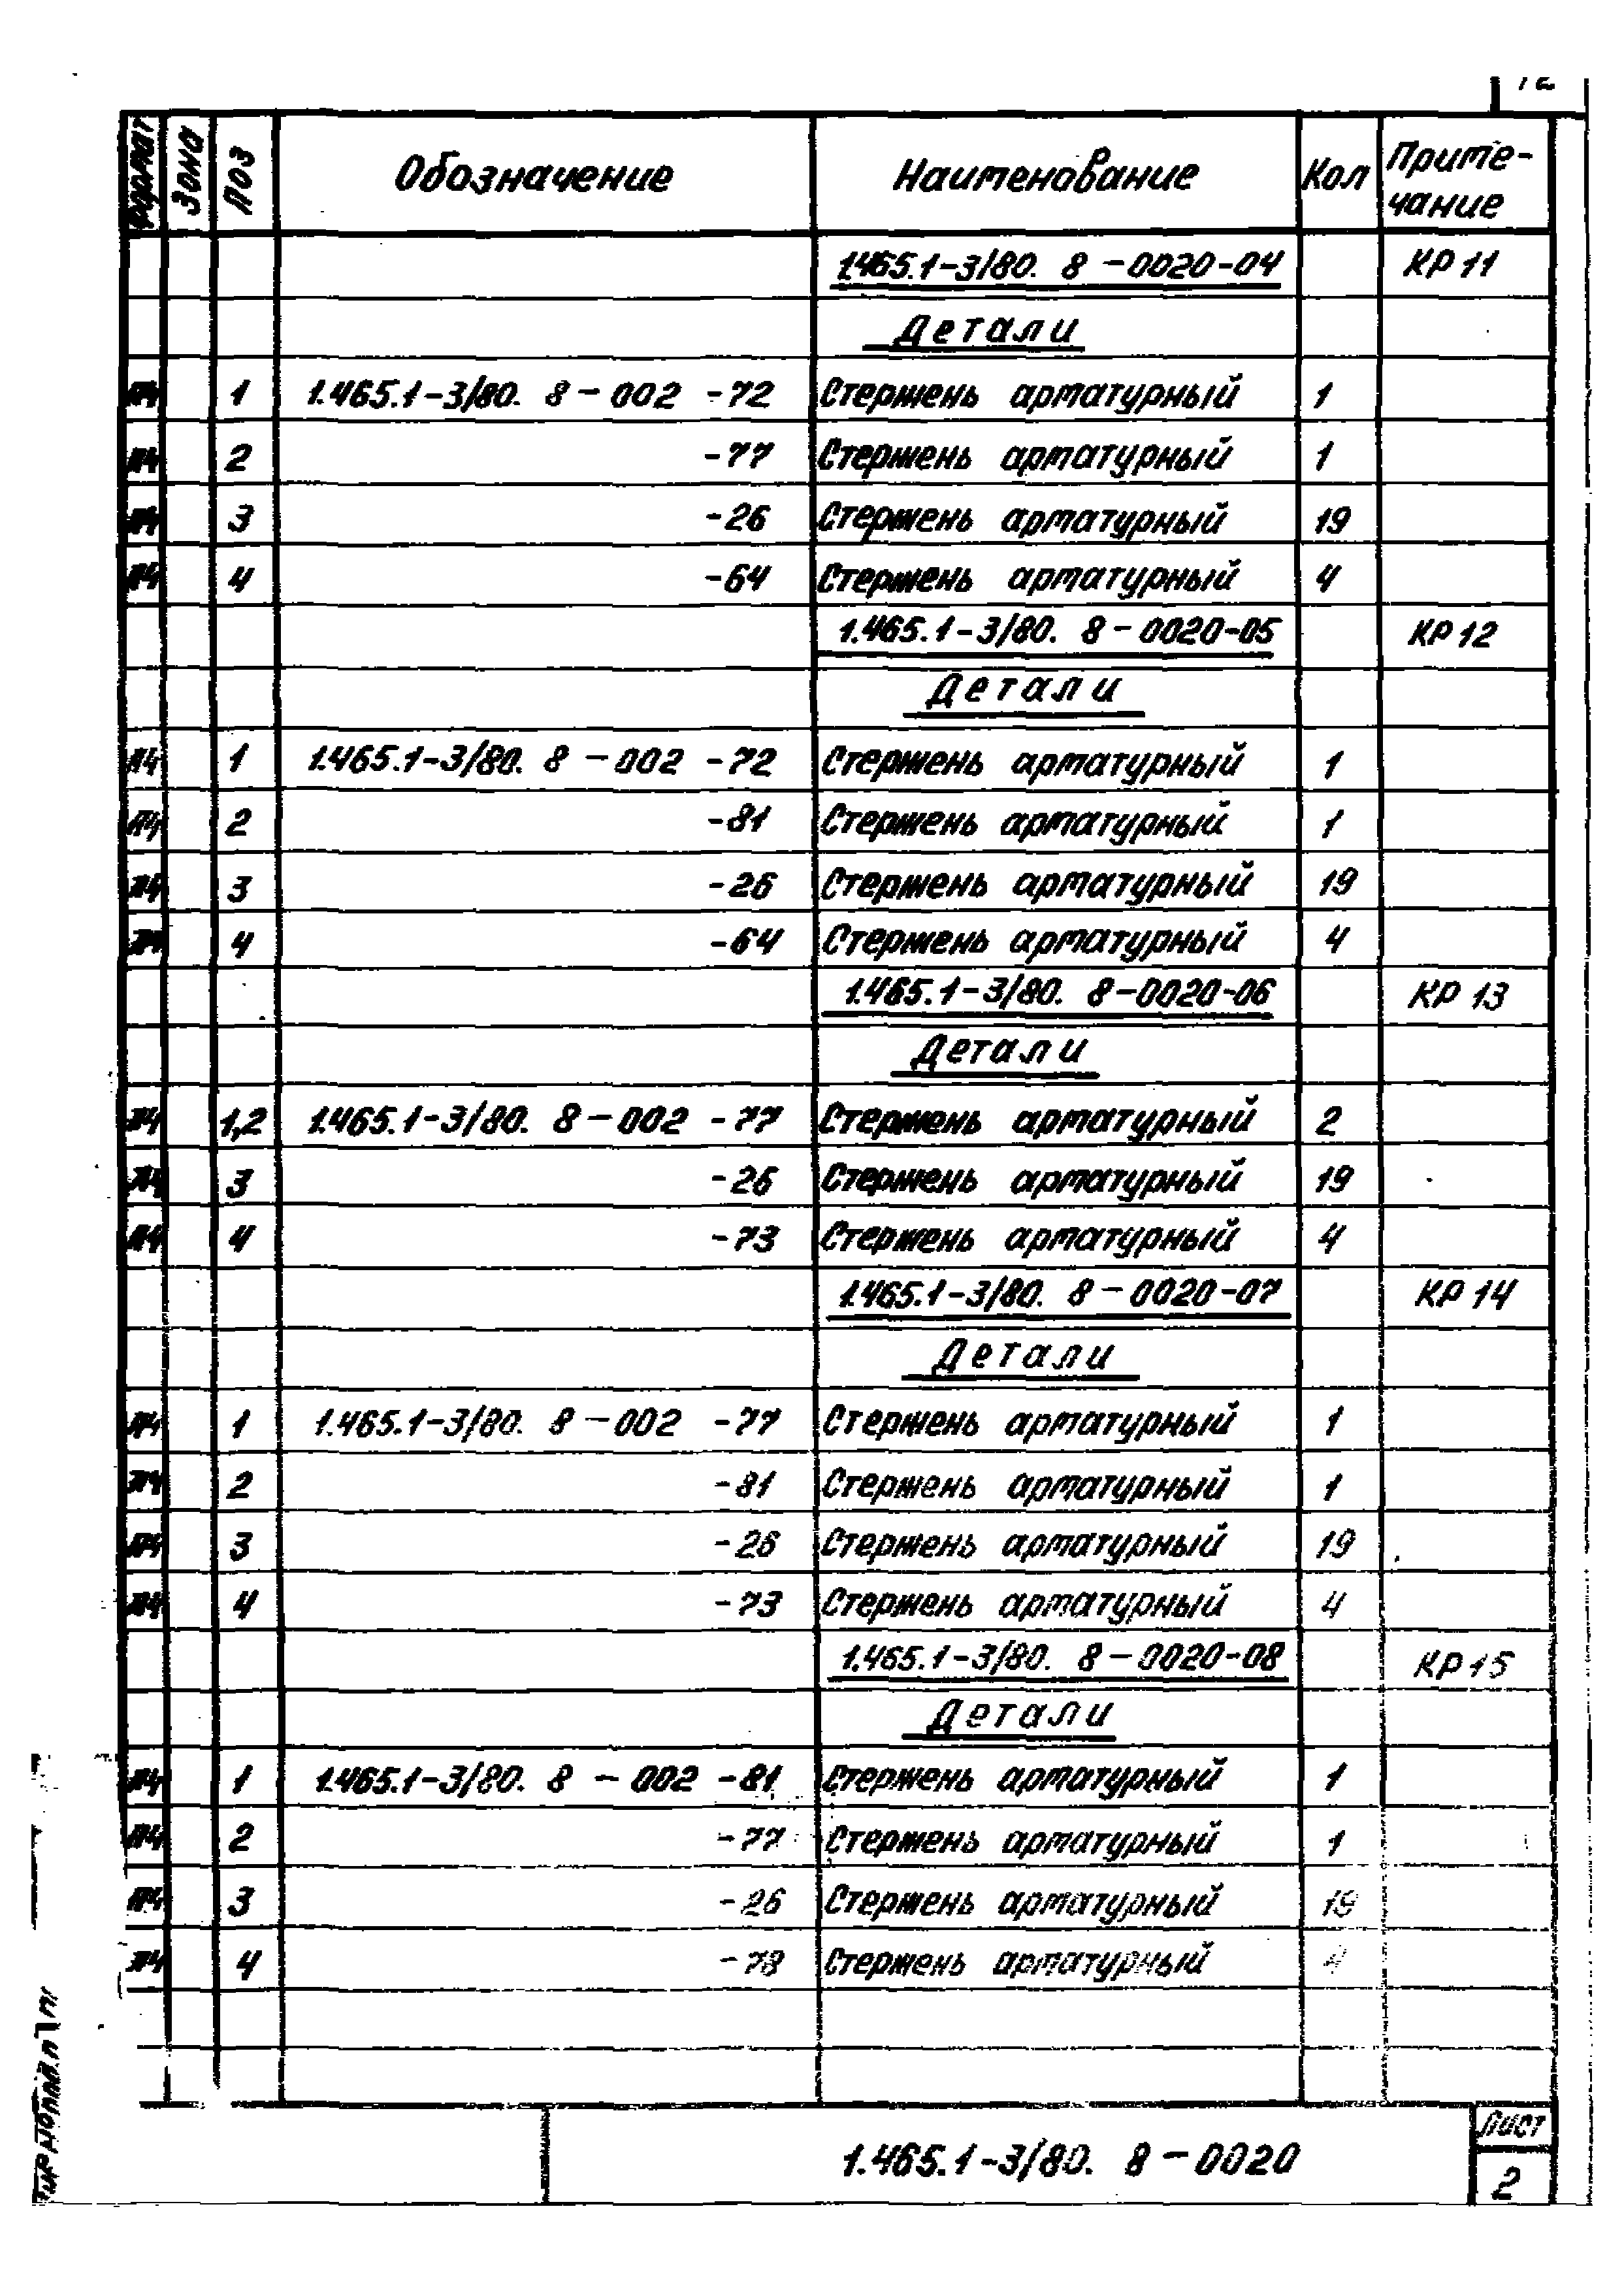 Формат Зона Поз Обозначение Наименование Кол Приме-
чание
1.465.1-3/80. 8-0020-04 КР 11
Детали
А4 1 1.465.1-3/80. 8-002 -72 Стержень арматурный 1
А4 2 -77 Стержень арматурный 1
А4 3 -26 Стержень арматурный 19
А4 4 -64 Стержень арматурный 4
1.465.1-3/80. 8-0020-05 КР 12
Детали
А4 1 1.465.1-3/80. 8-002 -72 Стержень арматурный 1
А4 2 -81 Стержень арматурный 1
А4 3 -26 Стержень арматурный 19
А4 4 -64 Стержень арматурный 4
1.465.1-3/80. 8-0020-06 КР 13
Детали
А4 1,2 1.465.1-3/80. 8-002 -77 Стержень арматурный 2
А4 3 -26 Стержень арматурный 19
А4 4 -73 Стержень арматурный 4
1.465.1-3/80. 8-0020-07 КР 14
Детали
А4 1 1.465.1-3/80. 8-002 -77 Стержень арматурный 1
А4 2 -81 Стержень арматурный 1
А4 3 -26 Стержень арматурный 19
А4 4 -73 Стержень арматурный 4
1.465.1-3/80. 8-0020-08 КР 15
Детали
А4 1 1.465.1-3/80. 8-002 -81 Стержень арматурный 1
А4 2 -77 Стержень арматурный 1
А4 3 -26 Стержень арматурный 19
А4 4 -78 Стержень арматурный 4
1.465.1-3/80. 8-0020
Лист
2